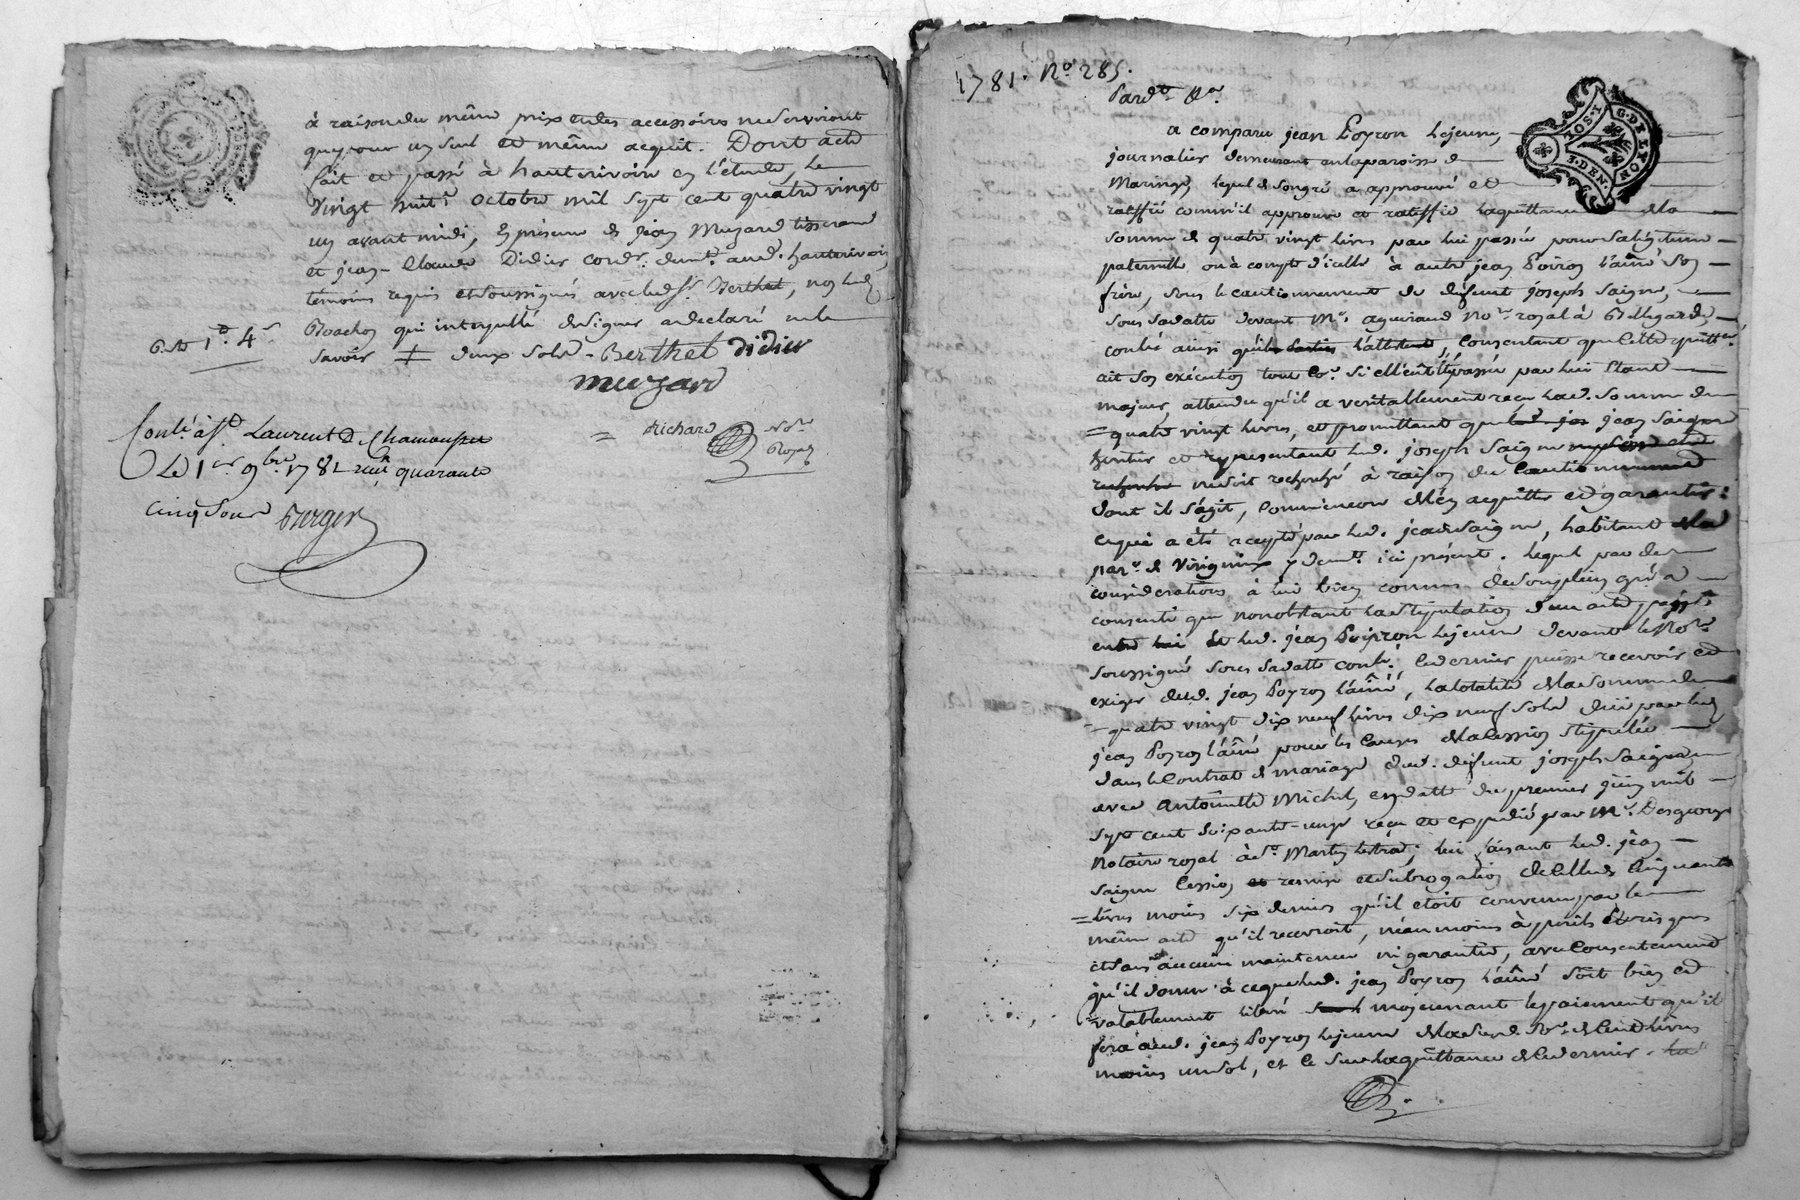 à raison du même prix et des accessoires ne serviront
que pour un seul et même acquit. Dont acte
fait et passé à hauterivoire en l'étude, le
vingt huit.e octobre mil sept cent quatre vingt
un avant midi, en présence de jean Muzard tisserand
et jean-Claude Didier cond.r dem.t aud. hauterivoire
témoins requis et soussignés avec led. s.r Berthet, non led.
qui interpellé de signer a déclaré ne le
savoir deux sols - Berthet didier
muzard
Richard
No.re
Royal
Conlé à S.t Laurent De Chamousset
Le 1.er 9.bre 1781 reçu quarante
cinq sous Berger
1781. N.o 285.
Pard.t &a.
a comparu jean Poyron lejeune,
journalier demeurant en la paroisse de
Maringe, lequel de son gré a approuvé et
ratiffié comm'il approuve et ratiffie la quittance de la
somme de quatre vingt livres par lui passée pour sa légitime
paternelle ou à compte d'icelle à autre jean Poiron l'aîné son
frère, sous le cautionnement de défunt joseph Saigne,
sous sa datte devant M.e no.re royal à Bellegarde,
conlée ainsi qu'il consentant que cette quitt.ce
ait son exécution tout co.e si elle eût été passée par lui étant
majeur, attendu qu'il a véritablement reçu lad. somme de
quatre vingt livres, et promettant que jean Saigne
héritier et représentant led. joseph Saigne
ne soit recherché à raison du cautionnement
dont il s'agit, comm'encore de l'en acquitter et garantir:
ce qui a été accepté par led. jean Saigne, habitant de la
par.e de Virigneux y dem.t ici présent. lequel par des
considérations à lui bien connues de son plein gré a
consenti que nonobstant la stipulation d'un acte passé
entre lui et led. jean Poyron lejeune devant le No.re
soussigné sous sa datte conlé, ce dernier puisse recevoir et
exiger dud. jean Poyron l'aîné, la totalité de la somme de
quatre vingt dix neuf livres dix neuf sols dûe par led.
jean Poyron l'aîné pour les causes de la cession stipulée
dans le Contrat de mariage dud. défunt joseph Saigne
avec Antoinette Michel, en datte du premier juin mil
sept cent soixante-onze reçu et expédié par M.e Desgeorges
Notaire royal à S.t Martin lestrà; lui faisant led. jean
Saigne cession et remise et subrogation de celle de cinquante
livres moins six deniers qu'il étoit convenu par le
même acte qu'il recevroit, néanmoins à périls et risques
et sans aucune maintenue ni garantie, avec consentement
qu'il donne à ce que led. jean Poyron l'aîné soit bien et
valablement libéré moyennant le paiement qu'il
fera aud. jean Poyron lejeune de lad. so.e de cent livres
moins un sol, et ce sur la quittance de ce dernier.
G.DE LYON
2.SOLS
8.DEN.